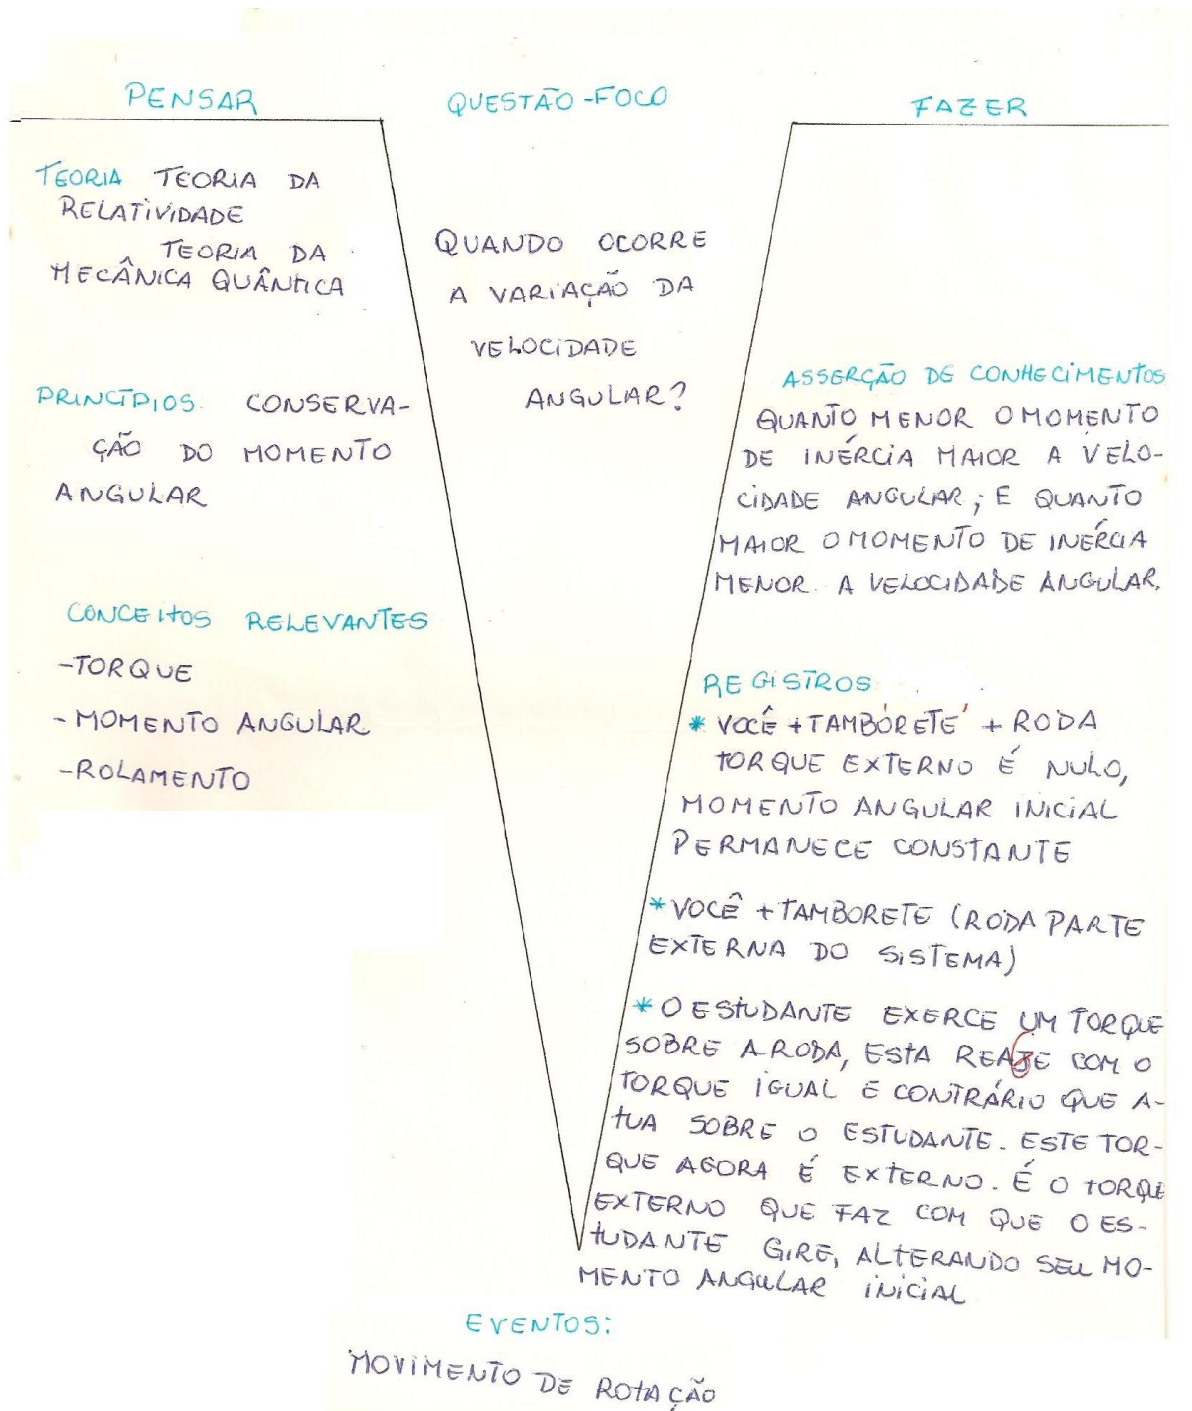 PENSAR
QUESTÃO-FOCO
FAZER
TEORIA TEORIA DA
RELATIVIDADE
TEORIA DA
MECÂNICA QUÂNTICA
PRINCÍPIOS CONSERVA-
ÇÃO DO MOMENTO
ANGULAR
CONCEITOS RELEVANTES
-TORQUE
- MOMENTO ANGULAR
-ROLAMENTO
QUANDO OCORRE
A VARIAÇÃO DA
VELOCIDADE
ANGULAR?
ASSERÇÃO DE CONHECIMENTOS
QUANTO MENOR O MOMENTO
DE INÉRCIA MAIOR A VELO-
CIDADE ANGULAR; E QUANTO
MAIOR O MOMENTO DE INÉRCIA
MENOR A VELOCIDADE ANGULAR.
REGISTROS
* VOCÊ + TAMBORETE + RODA
TORQUE EXTERNO É NULO,
MOMENTO ANGULAR INICIAL
PERMANECE CONSTANTE
* VOCÊ + TAMBORETE (RODA PARTE
EXTERNA DO SISTEMA)
* O ESTUDANTE EXERCE UM TORQUE
SOBRE A RODA, ESTA REAGE COM O
TORQUE IGUAL E CONTRÁRIO QUE A-
TUA SOBRE O ESTUDANTE. ESTE TOR-
QUE AGORA É EXTERNO. É O TORQUE
EXTERNO QUE FAZ COM QUE O ES-
TUDANTE GIRE, ALTERANDO SEU MO-
MENTO ANGULAR INICIAL
EVENTOS:
MOVIMENTO DE ROTAÇÃO